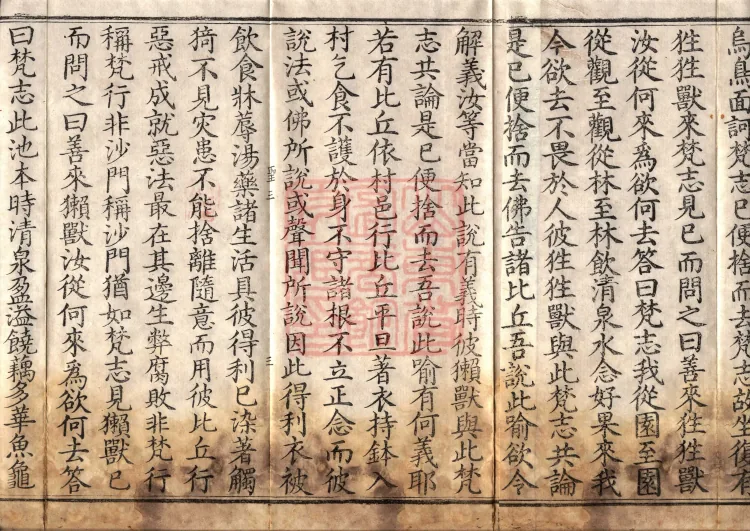 烏鳥面訶梵志已便捨而去梵志故生復有
狌狌獸來梵志見已而問之曰善來狌狌獸
汝從何來為欲何去答曰梵志我從園至園
從觀至觀從林至林飲清泉水念好果來我
今欲去不畏於人彼狌狌獸與此梵志共論
是已便捨而去佛告諸比丘吾說此喻欲令
解義汝等當知此說有義時彼獺獸與此梵
志共論是已便捨而去吾說此喻有何義耶
若有比丘依村邑行比丘平旦著衣持鉢入
村乞食不護於身不守諸根不立正念而彼
說法或佛所說或聲聞所說因此得利衣被
聖三
三
飲食牀蓐湯藥諸生活具彼得利已染著觸
猗不見灾患不能捨離隨意而用彼比丘行
惡戒成就惡法最在其邊生弊腐敗非梵行
稱梵行非沙門稱沙門猶如梵志見獺獸已
而問之曰善來獺獸汝從何來為欲何去答
曰梵志此池本時清泉盈溢饒藕多華魚龜